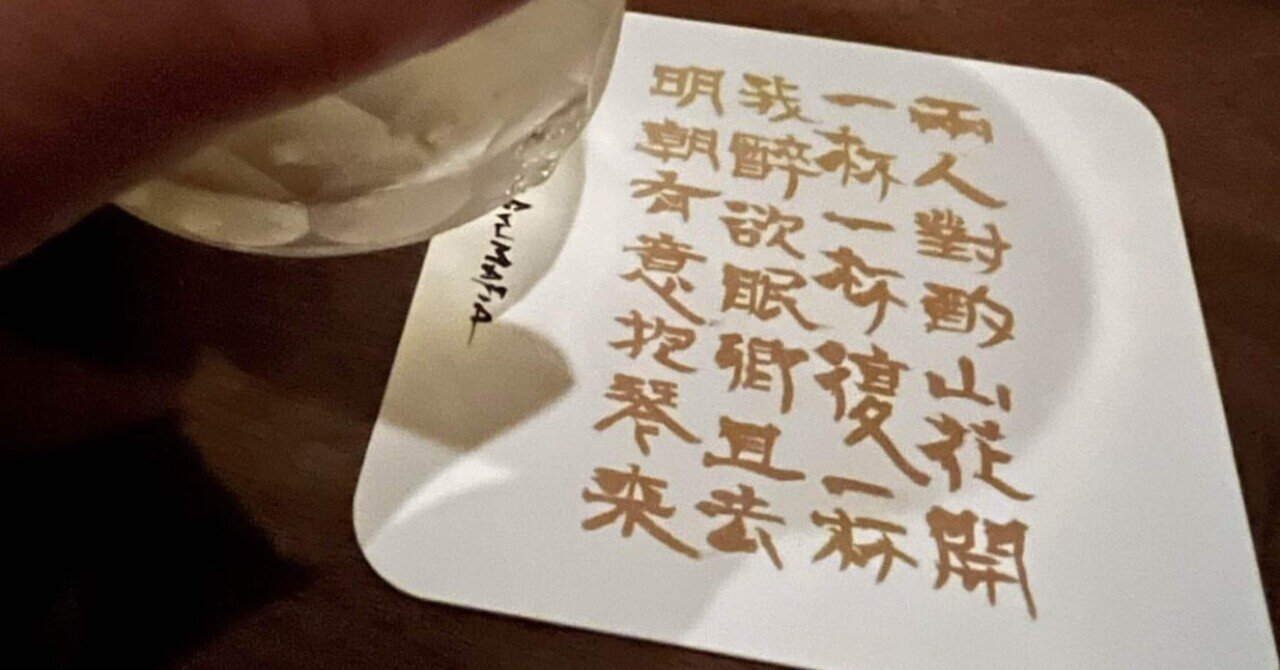 兩人對酌山花開
一杯一杯復一杯
我醉欲眠卿且去
明朝有意抱琴來